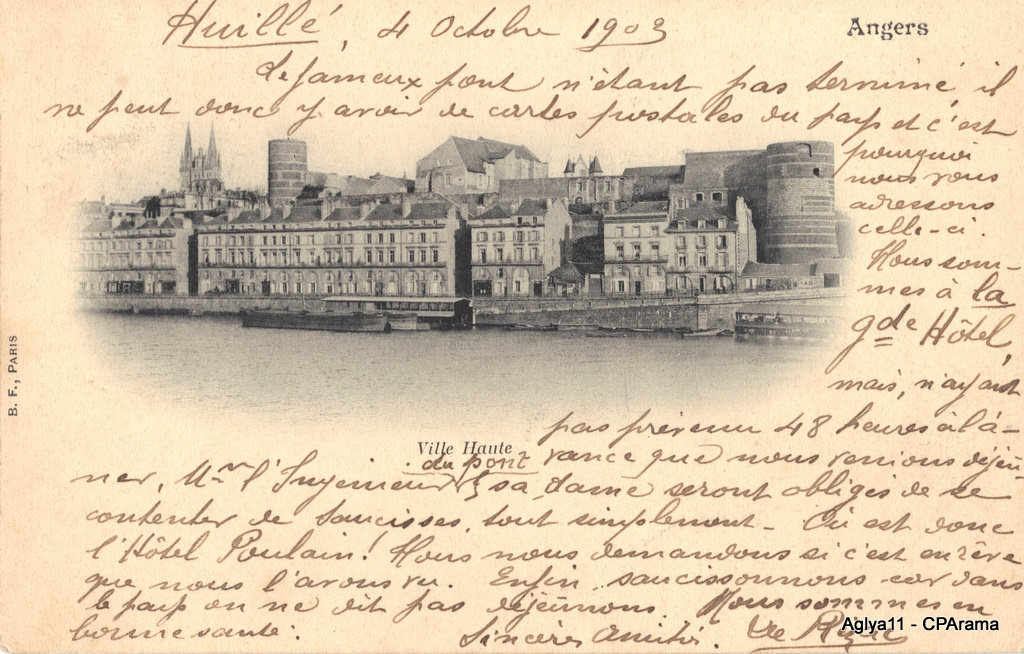 Huillé, 4 Octobre 1903
Angers
Le fameux pont n'étant pas terminé, il
ne peut donc y avoir de cartes postales du pays et c'est
pourquoi
nous vous
adressons
celle-ci.
Nous som-
mes à la
gde Hôtel,
mais, n'ayant
pas prévenu 48 heures à l'a-
Ville Haute
vance que nous venions déjeu-
du pont
ner, Mr l'Ingénieur & sa dame seront obligés de se
contenter de saucisses, tout simplement - Où est donc
l'Hôtel Poulain! Nous nous demandons si c'est en rêve
que nous l'avons vu. Enfin, saucissonnons car dans
le pays on ne dit pas déjeunons. Nous sommes en
bonne santé.
Sincères Amitiés.
B. F., PARIS
Aglya11 - CPArama